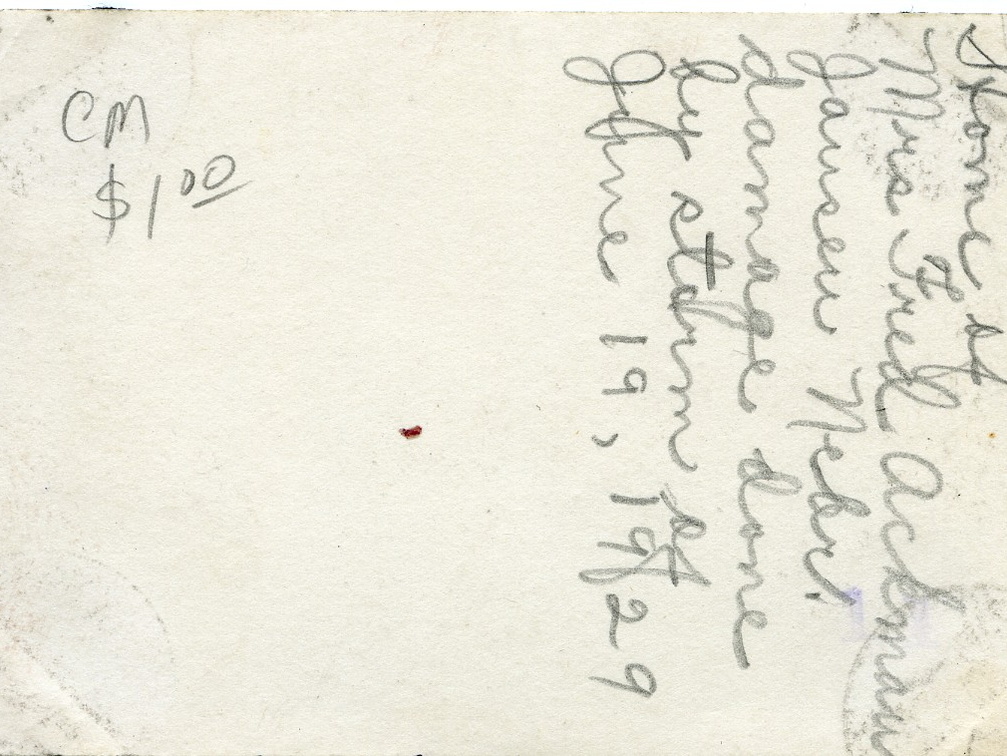 Home of
Mrs Fred Ackman
Jansen Nebr.
damage done
by storm of
June 19, 1929
CM
$1.00